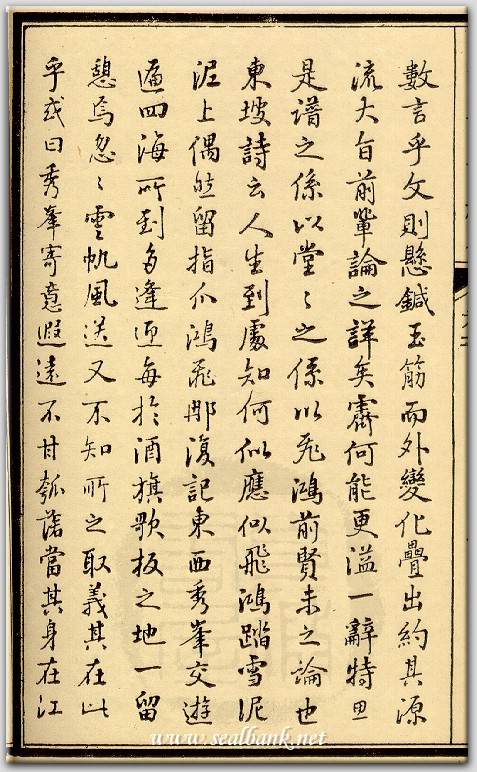 數言乎文則懸鍼玉筋而外變化疊出約其源
流大旨前輩論之詳矣霽何能更溢一辭特思
是譜之係以堂〻之係以飛鴻前賢未之論也
東坡詩云人生到處知何似應似飛鴻踏雪泥
泥上偶然留指爪鴻飛那復記東西秀峯交遊
遍四海所到多逢迎每於酒旗歌板之地一留
憩焉忽〻雲帆風送又不知所之取義其在此
乎或曰秀峯寄意遐遠不甘瓠落當其身在江
www.sealbank.net